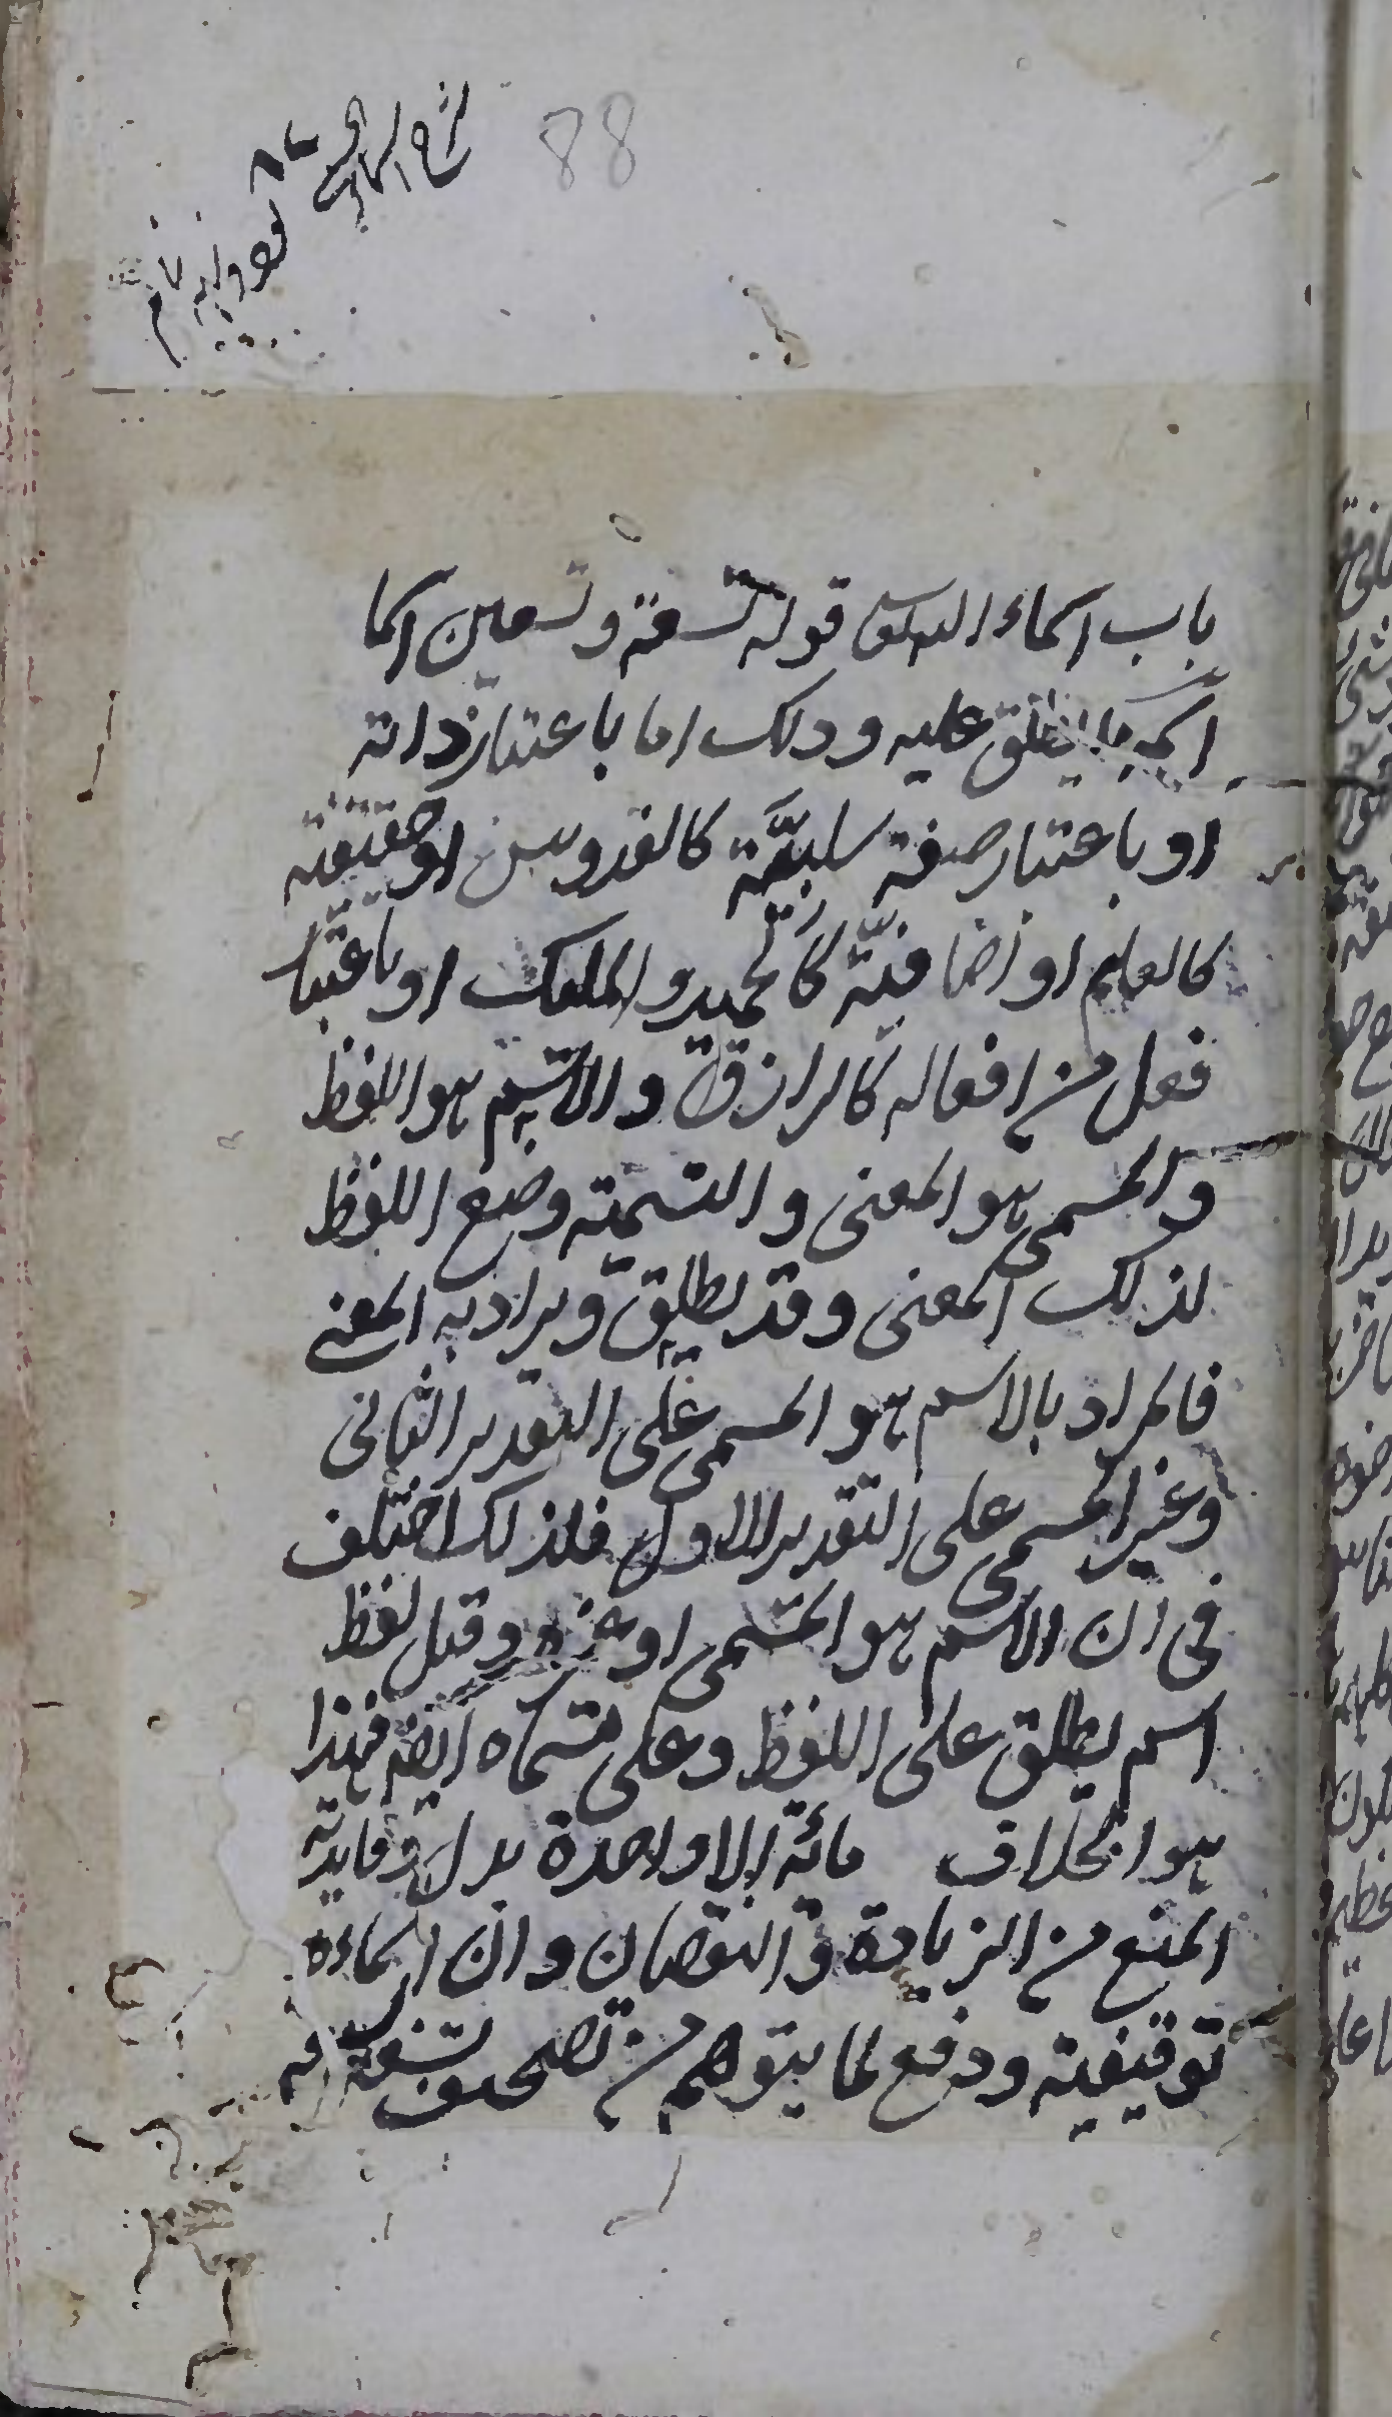 88
باب اسماء الله تعالى قوله تسعة وتسعين اسما
اسم ما يطلق عليه وذلك اما باعتبار ذاته
او باعتبار صفة سلبية كالقدوس او حقيقية
كالعليم او اضافية كالحميد والملك او باعتبار
فعل من افعاله كالرازق والاسم هو اللفظ
والمسمى هو المعنى والتسمية وضع اللفظ
لذلك المعنى وقد يطلق ويراد به المعنى
فالمراد بالاسم هو المسمى على التقدير الثانى
وغير المسمى على التقدير الاول فلذلك اختلف
فى ان الاسم هو المسمى او غيره وقيل لفظ
اسم يطلق على اللفظ وعلى مسماه ايضا فهذا
هو الخلاف مائة الا واحدة بدل وفايدته
المنع من الزيادة والنقصان وان اسماءه
توقيفية ودفع لما يتوهم من تصحيف تسعة